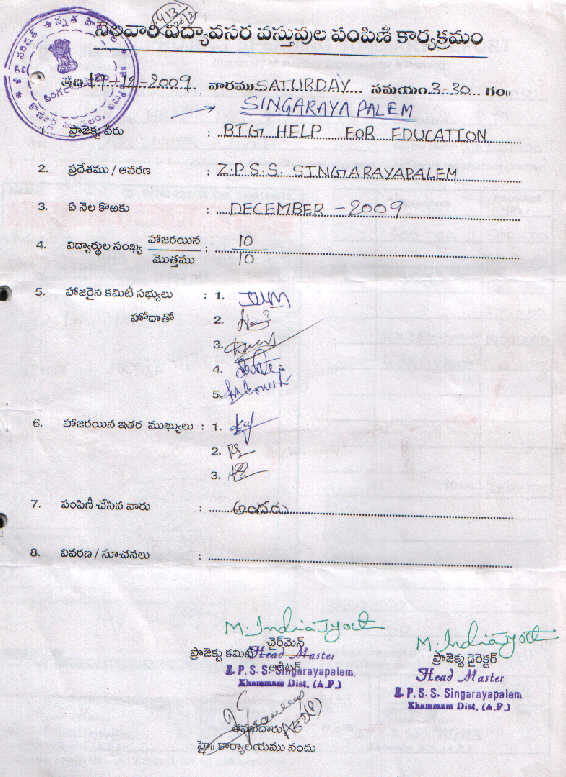 నెలవారీ విద్యావసర వస్తువుల పంపిణి కార్యక్రమం
తేది 19-12-2009 వారము SATURDAY సమయం 3-30 గం॥
SINGARAYAPALEM
ప్రాజెక్టు పేరు : BIG HELP FOR EDUCATION
2. ప్రదేశము / ఆవరణ : Z.P.S.S. SINGARAYAPALEM
3. ఏ నెల కొఱకు : DECEMBER - 2009
4. విద్యార్థుల సంఖ్య హాజరయిన : 10
మొత్తము 10
5. హాజరైన కమిటీ సభ్యులు : 1.
హోదాతో 2.
3.
4.
5.
6. హాజరయిన ఇతర ముఖ్యులు : 1.
2.
3.
7. పంపిణీ చేసిన వారు : అందరు
8. వివరణ / సూచనలు :
M. India Jyoti M. India Jyoti
ఛైర్మెన్
ప్రాజెక్టు కమిటీ Head Master ప్రాజెక్టు డైరెక్టర్
Z. P. S. S. Singarayapalem, Head Master
Khammam Dist. (A.P.) Z. P. S. S. Singarayapalem
Khammam Dist. (A.P.)
హై॥ కార్యాలయము నందు